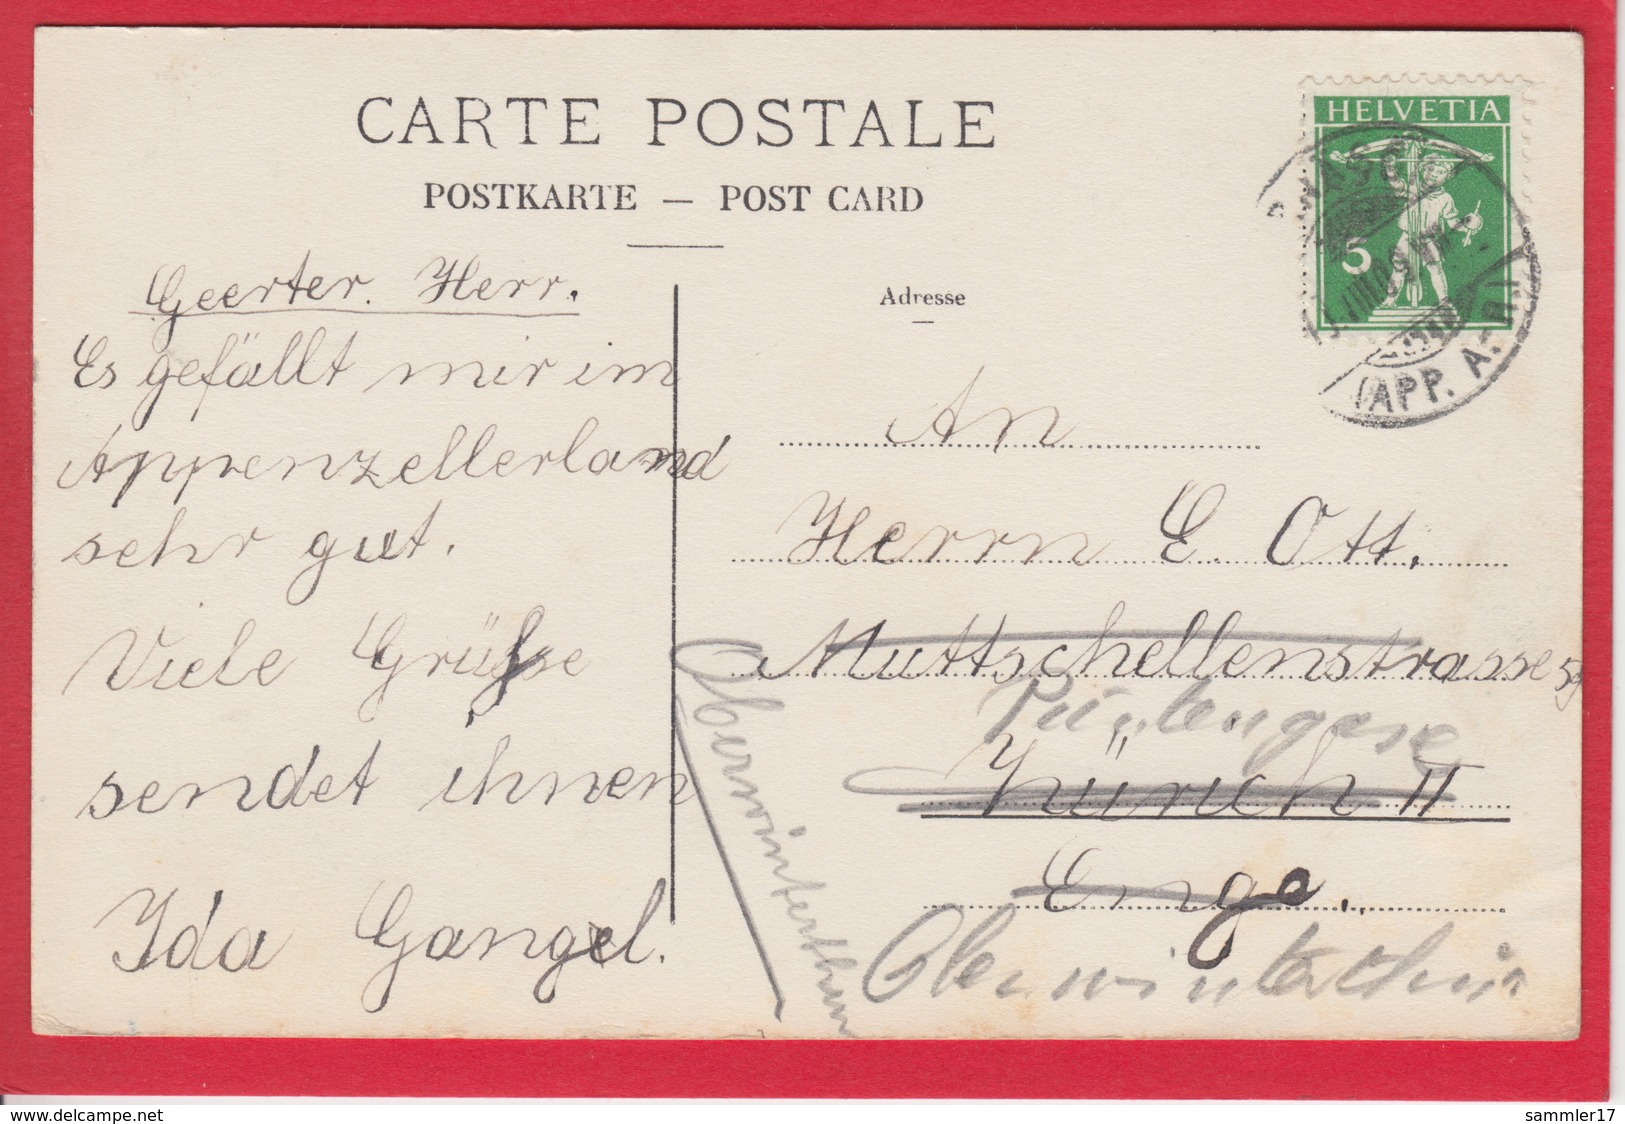 CARTE POSTALE
POSTKARTE — POST CARD
HELVETIA
5
(APP. A.
Geerter. Herr.
Es gefällt mir im
Appenzellerland
sehr gut.
Viele Grüsse
sendet ihnen
Ida Gangel.
Adresse
An
Herrn E. Ott.
Muttschellenstrasse 59
Zürich II
Enge.
Oberwinterthur
Oberwinterthur
www.delcampe.net
sammler17